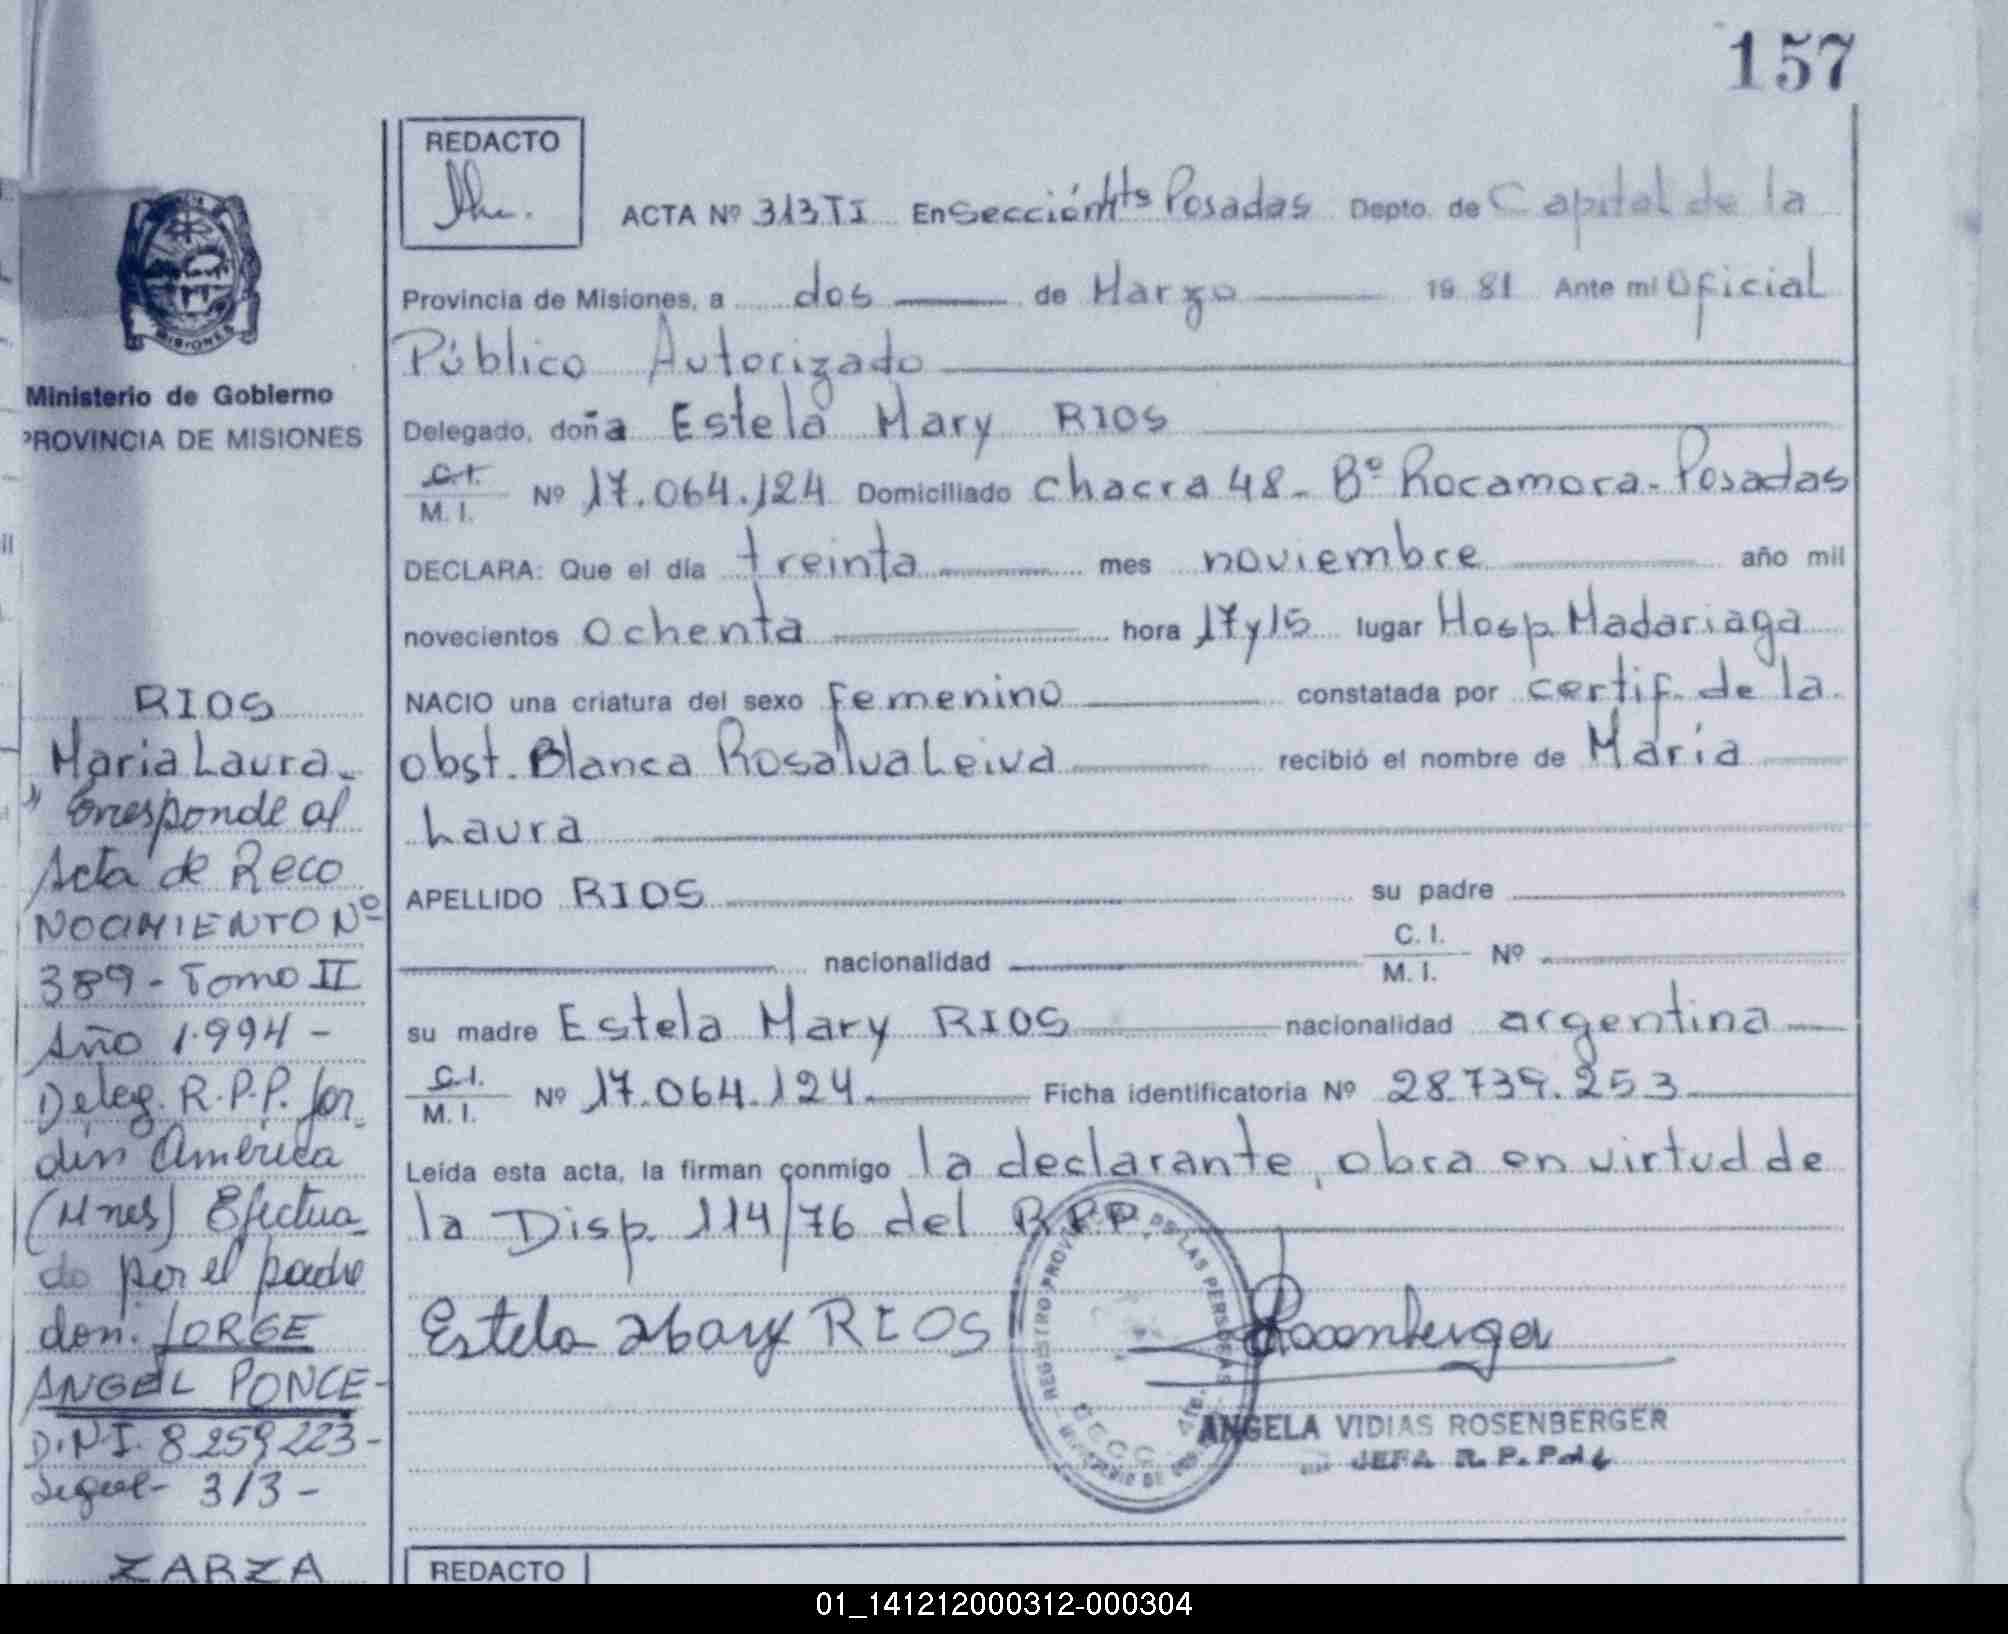 157
REDACTO
ACTA Nº 313 TI En Sección Hts Posadas Depto. de Capital de la
Provincia de Misiones, a dos de Marzo 19 81 Ante mi Oficial
Público Autorizado
Delegado, doña Estela Mary RIOS
C.I. / M.I. Nº 17.064.124 Domiciliado Chacra 48 - Bº Rocamora - Posadas
DECLARA: Que el día treinta mes noviembre año mil
novecientos ochenta hora 17 y 15 lugar Hosp. Madariaga
NACIO una criatura del sexo femenino constatada por certif. de la
obst. Blanca Rosalva Leiva recibió el nombre de María
Laura
APELLIDO RIOS su padre
nacionalidad C. I. / M. I. Nº
su madre Estela Mary RIOS nacionalidad argentina
C.I. / M. I. Nº 17.064.124 Ficha identificatoria Nº 28.739.253
Leída esta acta, la firman conmigo la declarante, obra en virtud de
la Disp. 114/76 del R.P.P.
Estela Mary RIOS Rosenberger
REGISTRO PROVINCIAL DE LAS PERSONAS
ANGELA VIDIAS ROSENBERGER
JEFA R. P. Pds
MISIONES
Ministerio de Gobierno
PROVINCIA DE MISIONES
RIOS
Maria Laura -
" Corresponde al
Acta de Reco
NOCIMIENTO Nº
389 - Tomo II
Año 1.994 -
Deleg. R.P.P. Jar
din América
(Mnes) Efectua
do por el padre
don: JORGE
ANGEL PONCE -
D.N.I. 8259223 -
Legal - 313 -
ZARZA
REDACTO
01_141212000312-000304